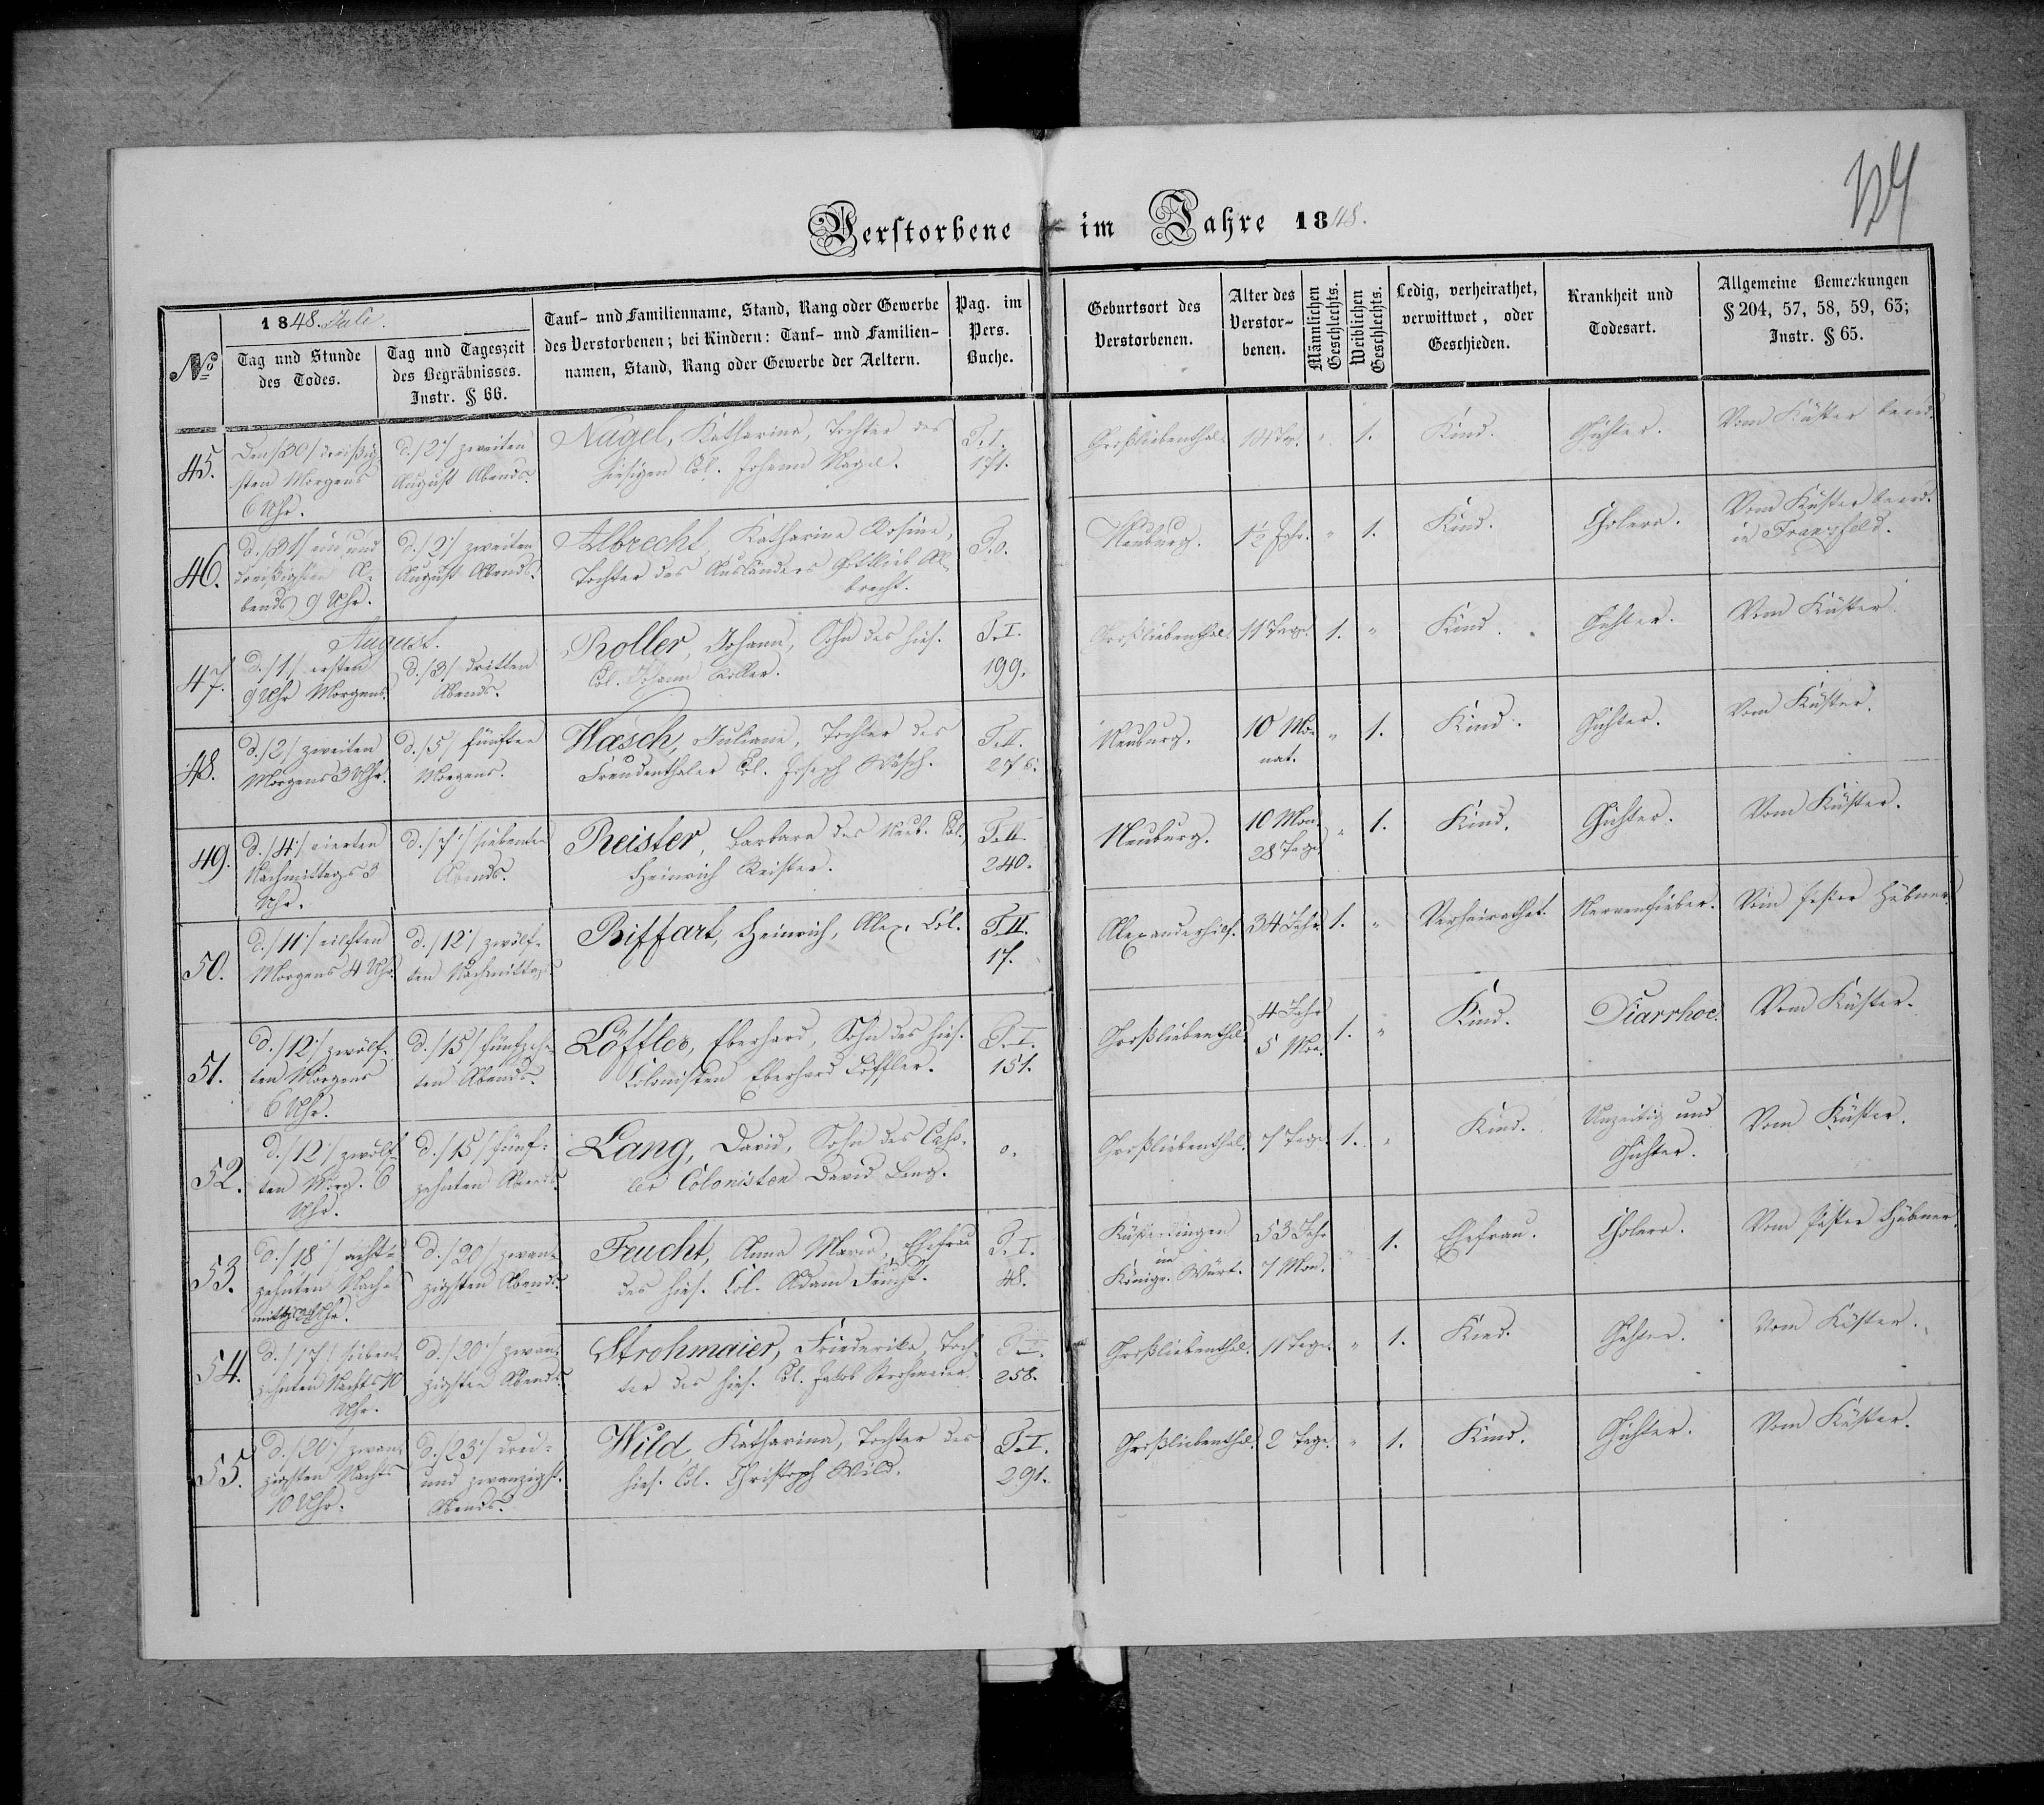 Verstorbene im Jahre 1848.
No
1848. Juli.
Tag und Stunde
des Todes.
Tag und Tageszeit
des Begräbnisses.
Instr. § 66.
Tauf- und Familienname, Stand, Rang oder Gewerbe
des Verstorbenen; bei Kindern: Tauf- und Familien-
namen, Stand, Rang oder Gewerbe der Aeltern.
Pag. im
Pers.
Buche.
Geburtsort des
Verstorbenen.
Alter des
Verstor-
benen.
Männlichen
Geschlechts.
Weiblichen
Geschlechts.
Ledig, verheirathet,
verwittwet, oder
Geschieden.
Krankheit und
Todesart.
Allgemeine Bemerkungen
§ 204, 57, 58, 59, 63;
Instr. § 65.
45.
Den /30/ dreißig-
sten Morgens
6 Uhr.
d. /2/ zweiten
August Abends.
Nagel, Katharina, Tochter des
hiesigen Col. Johann Nagel.
T. I.
171.
Großliebenthal.
" 1.
Kind.
Gichter.
Vom Küster beerd.
46.
d. /31/ ein und
dreißigsten A-
bends 9 Uhr.
d. /2/ zweiten
August Abends.
Albrecht, Katharina Rosine,
Tochter des Ausländers Gottlieb Al-
brecht.
T. 0.
Neuburg.
1½ Jahr.
" 1.
Kind.
Cholera.
Vom Küster beerd.
in Franzfeld.
August.
47.
d. /1/ ersten
9 Uhr Morgens.
d. /3/ dritten
Abends.
Roller, Johann, Sohn des hies.
Col. Johann Roller.
T. I.
199.
Großliebenthal.
11 Tage.
1. "
Kind.
Gichter.
Vom Küster.
48.
d. /2/ zweiten
Morgens 3 Uhr.
d. /5/ fünften
Morgens.
Wasch, Juliane, Tochter des
Freudenthaler Col. Joseph Wasch.
T. II.
276.
Neuburg.
10 Mo-
nat.
" 1.
Kind.
Gichter.
Vom Küster.
49.
d. /4/ vierten
Nachmittags 3
Uhr.
d. /7/ siebenten
Abends.
Reister, Barbara des Neub. Col.
Heinrich Reister.
T. II.
240.
Neuburg.
10 Mon.
28 Tage.
" 1.
Kind.
Gichter.
Vom Küster.
50.
d. /11/ eilften
Morgens 4 Uhr.
d. /12/ zwölf-
ten Nachmittags.
Biffart, Heinrich, Alex. Col.
T. II.
17.
Alexanderhilf.
34 Jahr.
1. "
Verheirathet.
Nervenfieber.
Vom Pastor Hübner.
51.
d. /12/ zwölf-
ten Morgens
6 Uhr.
d. /15/ fünfzehn-
ten Abends.
Löffler, Eberhard, Sohn des hies.
Colonisten Eberhard Löffler.
T. I.
151.
Großliebenthal.
4 Jahr
5 Mon.
1. "
Kind.
Diarrhoe.
Vom Küster.
52.
d. /12/ zwölf-
ten Morg. 6
Uhr.
d. /15/ fünf-
zehnten Abends.
Lang, David, Sohn des
Colonisten David Lang.
0.
Großliebenthal.
7 Tage.
1. "
Kind.
Unzeitig und
Gichter.
Vom Küster.
53.
d. /18/ acht-
zehnten Nach-
mittags Uhr.
d. /20/ zwan-
zigsten Abends.
Feucht, Anna Maria, Ehefrau
des hies. Col. Adam Feucht.
T. I.
48.
Küsterdingen
im
Königr. Würt.
53 Jahr
7 Mon.
" 1.
Ehefrau.
Cholera.
Vom Pastor Hübner.
54.
d. /17/ sieben-
zehnten Nachts 10
Uhr.
d. /20/ zwan-
zigsten Abends.
Strohmaier, Friederika, Toch-
ter des hies. Col. Jakob Strohmaier.
T. I.
258.
Großliebenthal.
11 Tage.
" 1.
Kind.
Gichter.
Vom Küster.
55.
d. /20/ zwan-
zigsten Nachts
10 Uhr.
d. /23/ drei-
und zwanzigst.
Abends.
Wild, Katharina, Tochter des
hies. Col. Christoph Wild.
T. I.
291.
Großliebenthal.
2 Tage.
" 1.
Kind.
Gichter.
Vom Küster.